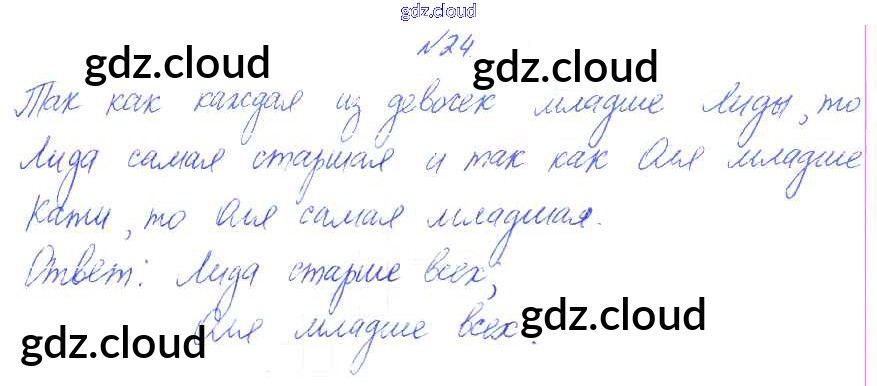 gdz.cloud
№24.
gdz.cloud gdz.cloud
Так как каждая из девочек младше Лиды, то
Лида самая старшая и так как Оля младше
Кати, то Оля самая младшая.
Ответ: Лида старше всех;
Оля младше всех.
gdz.cloud gdz.cloud